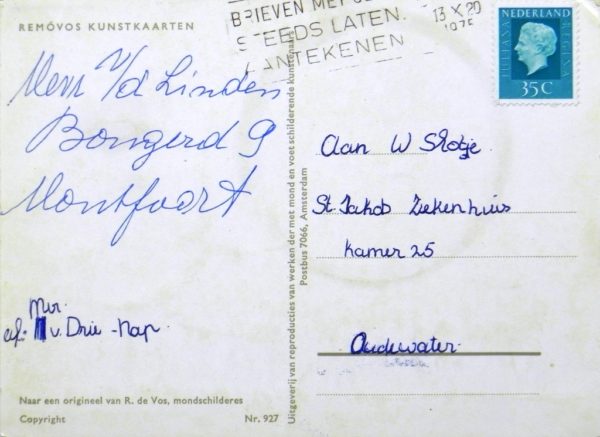 REMÓVOS KUNSTKAARTEN
Mevr v/d Linden
Bongerd 9
Montfoort
Mvr.
v. Drie - Nap.
Naar een origineel van R. de Vos, mondschilderes
Copyright
Nr. 927
Uitgeverij van reproducties van werken der met mond en voet schilderende kunstenaars
Postbus 7066, Amsterdam
STEEDS LATEN
AANTEKENEN
13 X. 20
1975
NEDERLAND
JULIANA
REGINA
35C
Aan W Slotje.
St. Jakob Ziekenhuis
Kamer 25
Oudewater.